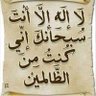 لَا إِلَهَ إِلَّا أَنْتَ
سُبْحَانَكَ إِنِّي
كُنْتُ مِنَ
الظَّالِمِينَ